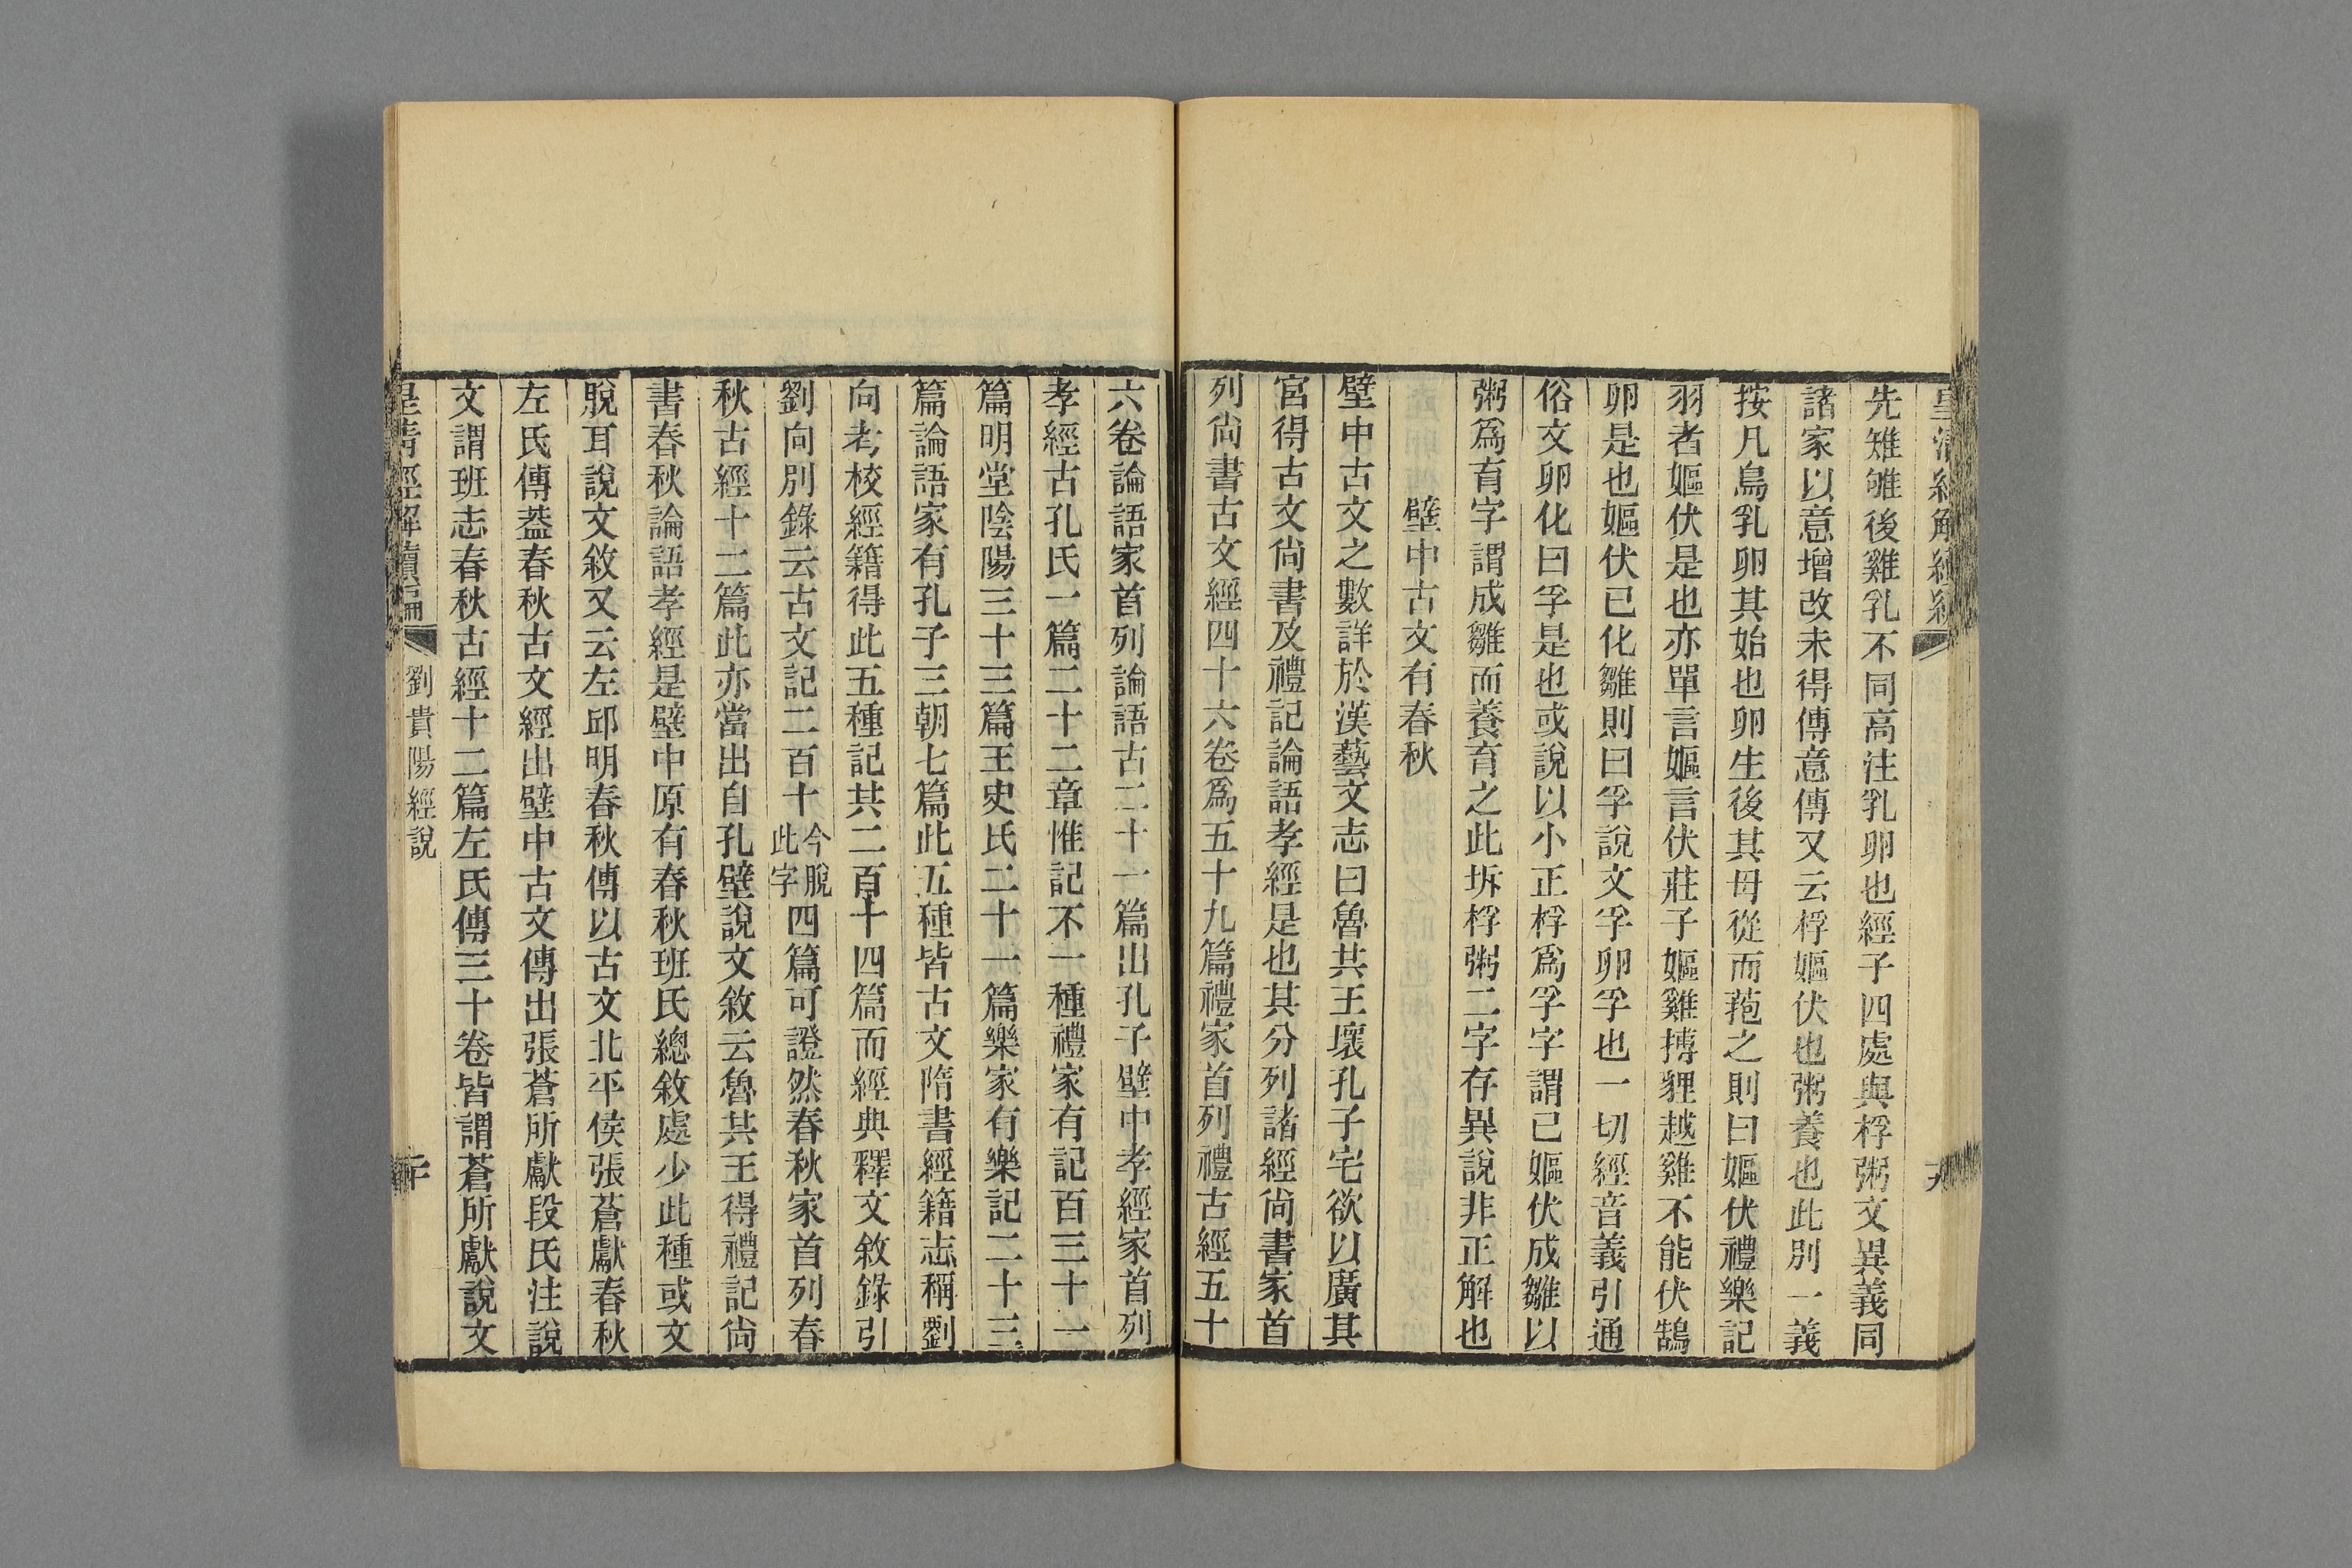 先雉雊後雞乳不同高注乳卵也經子四處與桴粥文異義同
諸家以意增改未得傳意傳又云桴嫗伏也粥養也此別一義
按凡鳥乳卵其始也卵生後其母從而菢之則曰嫗伏禮樂記
羽者嫗伏是也亦單言嫗言伏莊子嫗雞搏貍越雞不能伏鵠
卵是也嫗伏已化雛則曰孚說文孚卵孚也一切經音義引通
俗文卵化曰孚是也或說以小正桴爲孚字謂已嫗伏成雛以
粥爲育字謂成雛而養育之此坼桴粥二字存異說非正解也
壁中古文有春秋
壁中古文之數詳於漢藝文志曰魯共王壞孔子宅欲以廣其
宮得古文尙書及禮記論語孝經是也其分列諸經尙書家首
列尙書古文經四十六卷爲五十九篇禮家首列禮古經五十
六卷論語家首列論語古二十一篇出孔子壁中孝經家首列
孝經古孔氏一篇二十二章惟記不一種禮家有記百三十一
篇明堂陰陽三十三篇王史氏二十一篇樂家有樂記二十三
篇論語家有孔子三朝七篇此五種皆古文隋書經籍志稱劉
向考校經籍得此五種記共二百十四篇而經典釋文敘錄引
劉向別錄云古文記二百十今脫此字四篇可證然春秋家首列春
秋古經十二篇此亦當出自孔壁說文敘云魯共王得禮記尙
書春秋論語孝經是壁中原有春秋班氏總敘處少此種或文
脫耳說文敘又云左邱明春秋傳以古文北平侯張蒼獻春秋
左氏傳葢春秋古文經出壁中古文傳出張蒼所獻段氏注說
文謂班志春秋古經十二篇左氏傳三十卷皆謂蒼所獻說文
皇清經解續編 劉貴陽經說 二十